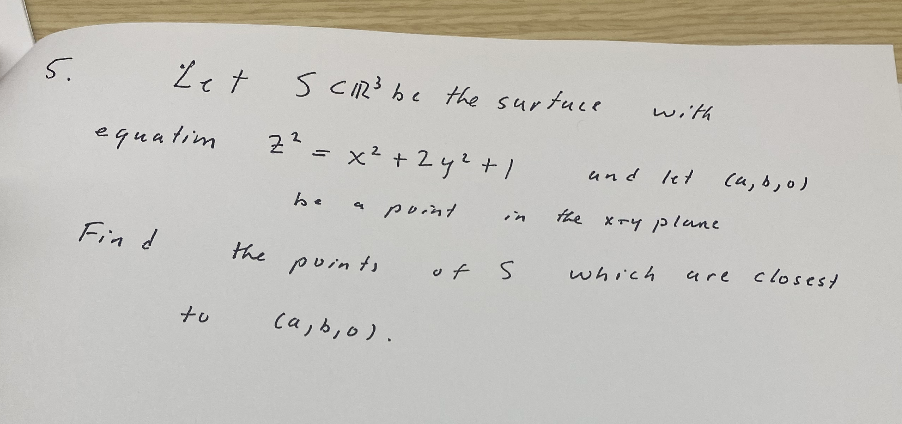 5. Let S ⊂ ℝ³ be the surface with
equation z² = x² + 2y² + 1 and let (a, b, 0)
be a point in the x-y plane
Find the points of S which are closest
to (a, b, 0).